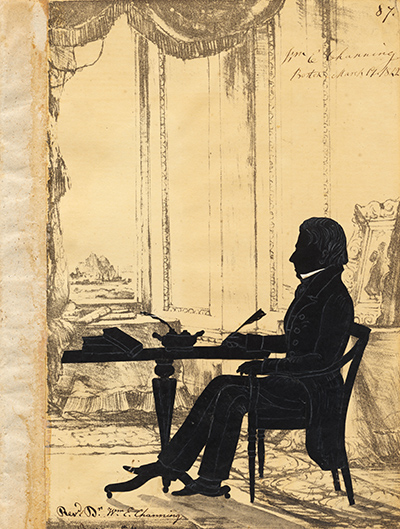 87.
Wm E Channing
Boston March 19, 1842
Revd. Dr. Wm. E. Channing.